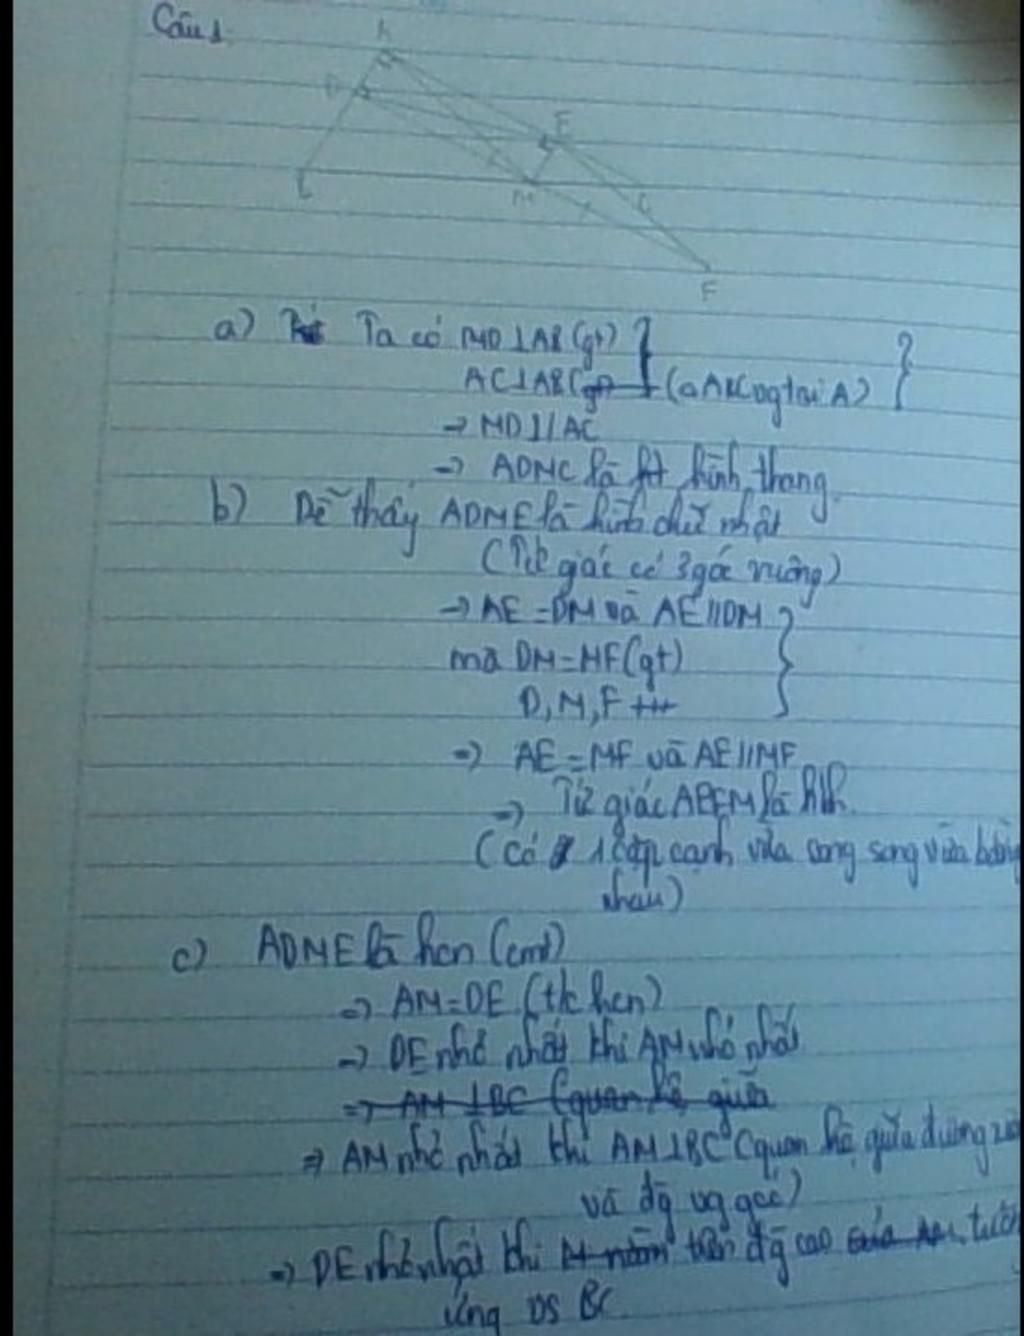 Câu 1.
A
D
E
M
C
F
a) Ta có MD⊥AB (gt)
AC⊥AB (gt) (△ABC vg tại A)
→ MD//AC
→ ADMC là hình thang
b) Dễ thấy ADME là hình chữ nhật
(Tứ giác có 3 góc vuông)
→ AE = DM và AE//DM
mà DM=MF(gt)
D, M, F
=> AE = MF và AE//MF
=> Tứ giác AEFM là hbh.
(Có 1 cặp cạnh vừa song song vừa bằng
nhau)
c) ADME là hcn (cmt)
=> AM=DE (t/c hcn)
→ DE nhỏ nhất khi AM nhỏ nhất
=> AM ⊥BC (quan hệ giữa
=> AM nhỏ nhất khi AM⊥BC (quan hệ giữa đường
và đg vg góc)
=> DE nhỏ nhất khi M nằm trên đg cao của AM. tướ
ứng vs BC